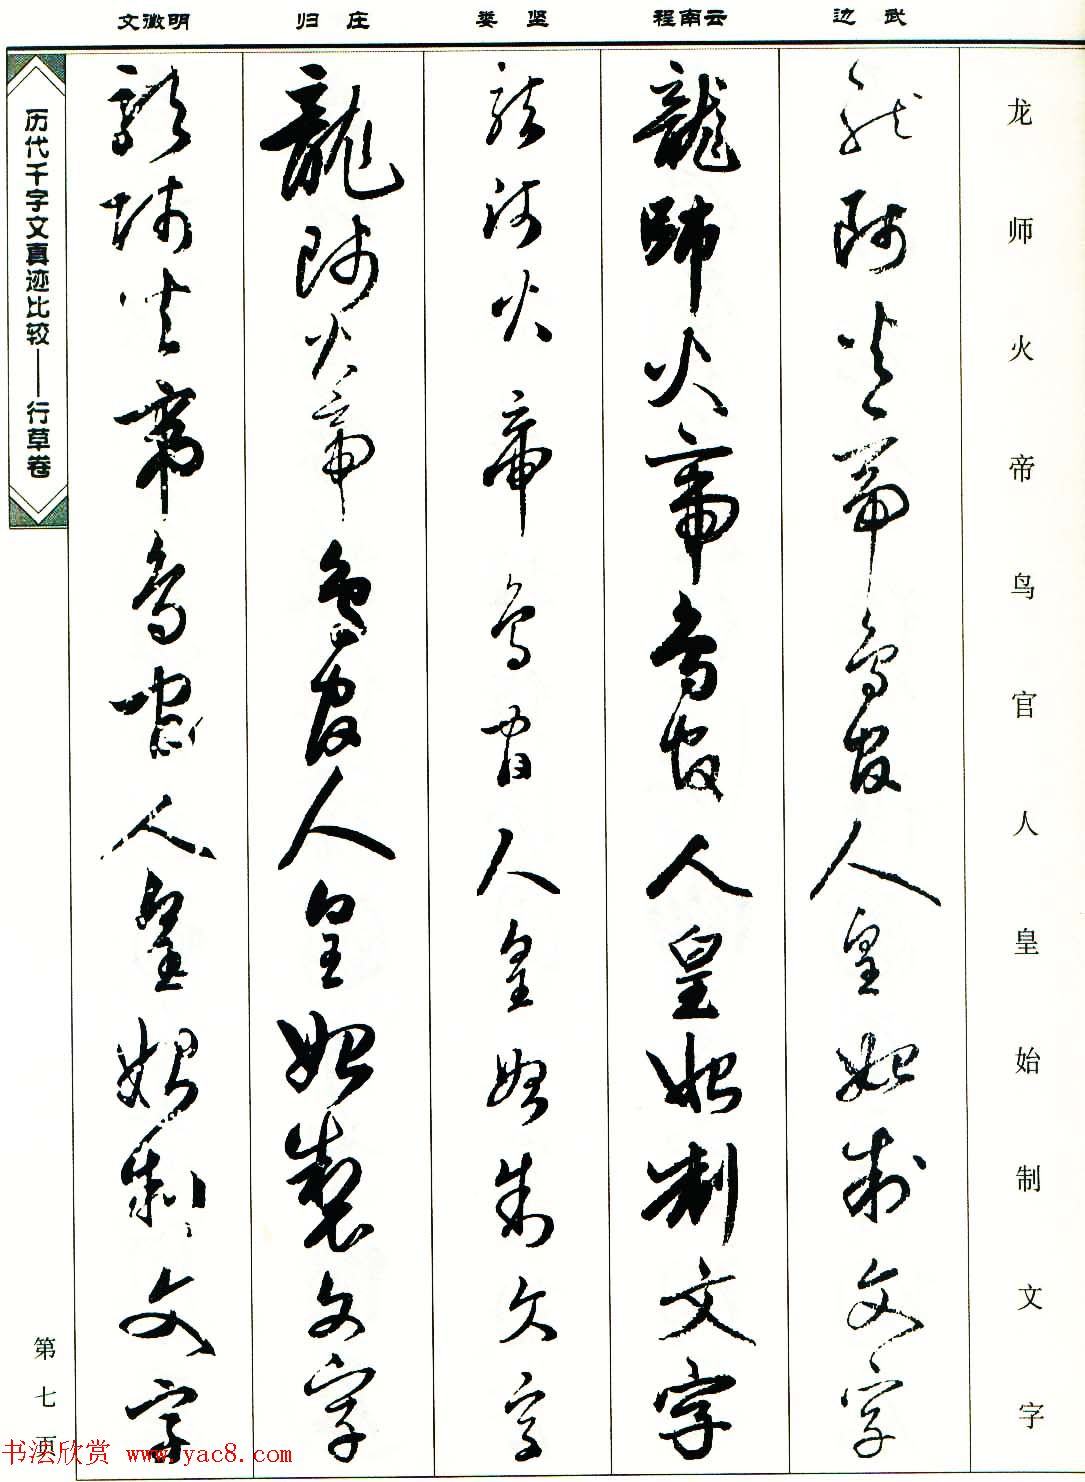 文徵明 归庄 娄坚 程南云 边武
龙师火帝鸟官人皇始制文字
龍師火帝鳥官人皇始制文字
龍師火帝鳥官人皇始制文字
龍師火帝鳥官人皇始制文字
龍師火帝鳥官人皇始製文字
龍師火帝鳥官人皇始制文字
历代千字文真迹比较——行草卷
第七页
书法欣赏 www.yac8.com